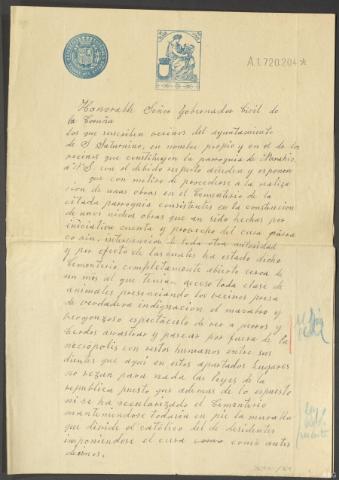 A1.720.204*
Honorable Señor Gobernador Civil de
la Coruña
Los que suscriben vecinos del ayuntamiento
de S Saturnino, en nombre propio y en el de los
vecinos que constituyen la parroquia de
a V.S. con el debido respeto acuden y exponen
que con motivo de procederse a la realiza
cion de unas obras en el Cementerio de la
citada parroquia consistentes en la construccion
de unos nichos obras que an sido hechas por
iniciativa cuenta y provecho del cura párro
co sin intervencion de toda otra autoridad
y por efecto de las cuales ha estado dicho
Cementerio completamente abierto cerca de
un mes al que tenian acceso toda clase de
animales presenciando los vecinos presa
de verdadera indignacion el macabro y
vergonzoso espectáculo de ver a perros y
cerdos arrastrar y pasear por fuera de la
necrópolis con restos humanos entre sus
dientes que aqui en estos apartados lugares
no rezan para nada las leyes de la
republica puesto que ademas de lo expuesto
ni se ha secularizado el Cementerio
manteniendose todavia en pie la muralla
que divide al católico del de disidentes
imponiendose el cura como antes